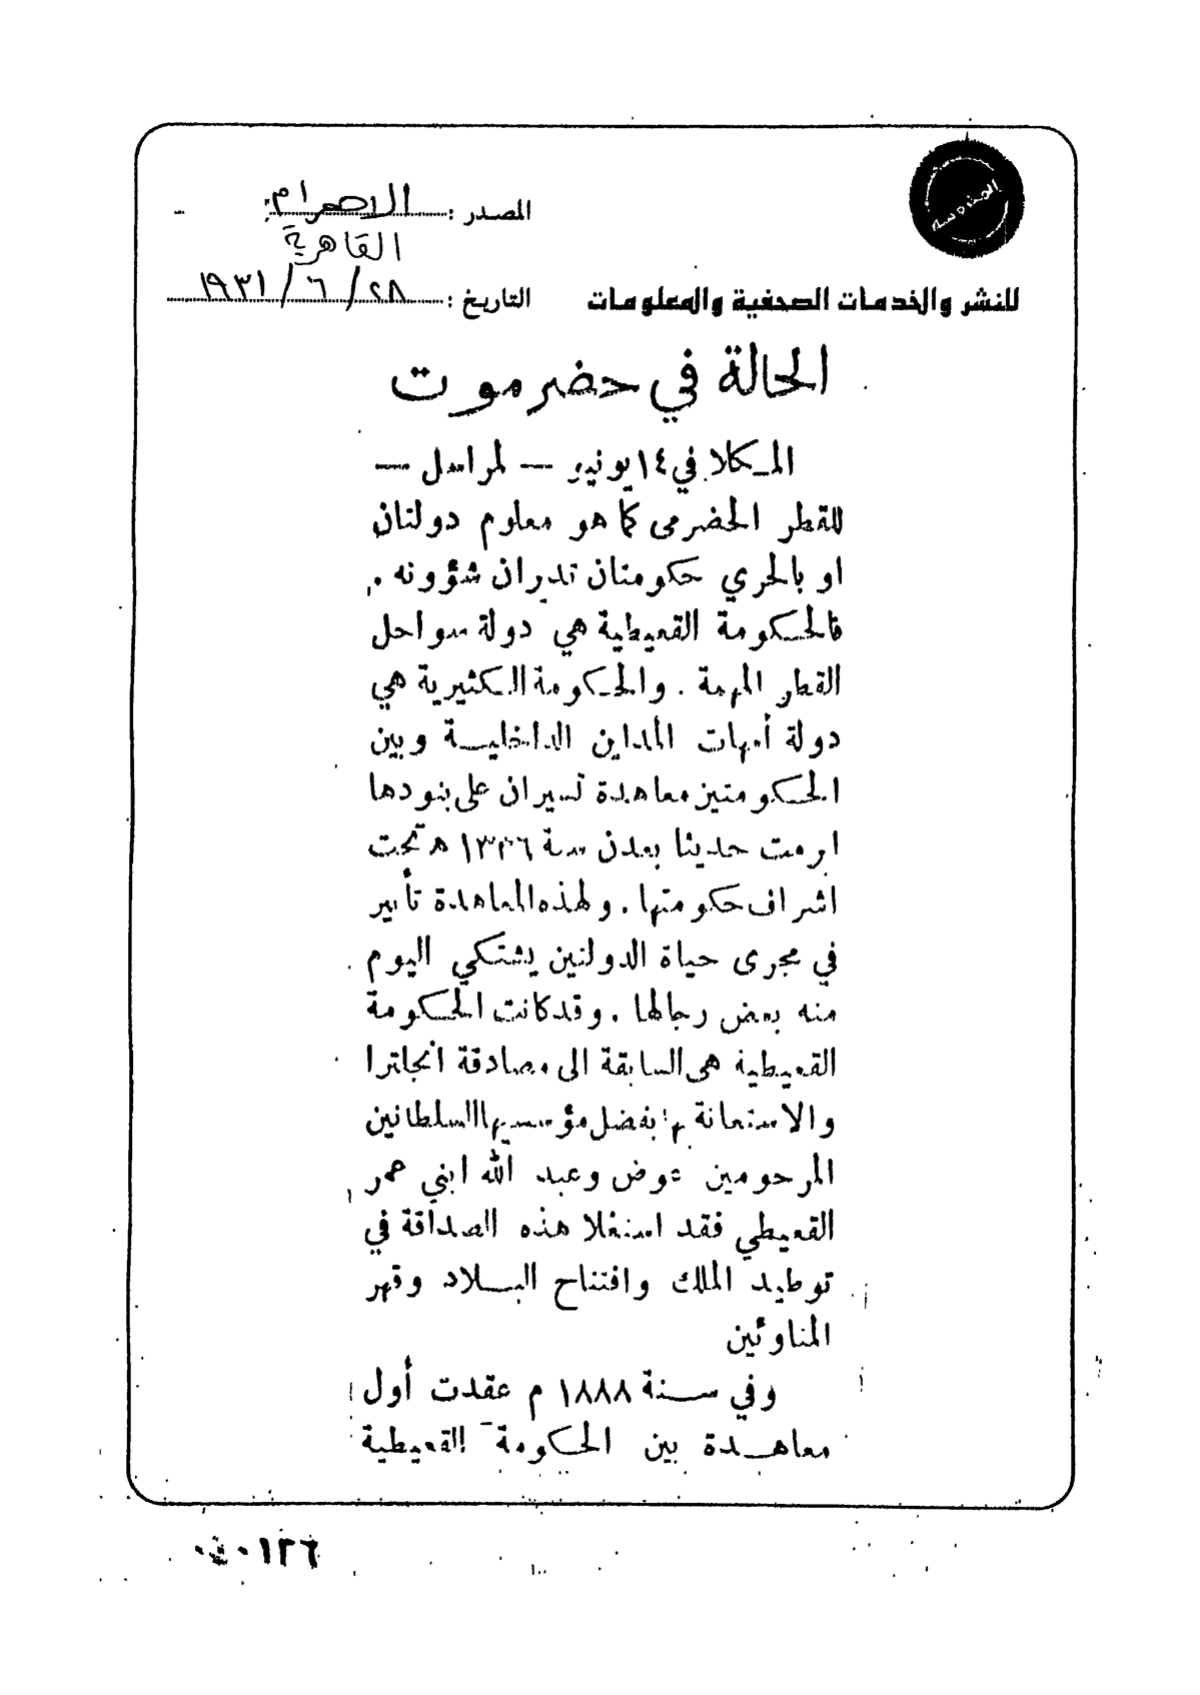 المحروسة
المصدر : الاهرام
القاهرية
للنشر والخدمات الصحفية والمعلومات
التاريخ : ٢٨ / ٦ / ١٩٣١
الحالة في حضرموت
المكلا في ١٤ يونيو — لمراسل —
للقطر الحضرمى كما هو معلوم دولتان
او بالحري حكومتان تديران شؤونه .
فالحكومة القعيطية هي دولة سواحل
القطر المهمة . والحكومة الكثيرية هي
دولة أمهات المداين الداخلية وبين
الحكومتين معاهدة تسيران على بنودها
ابرمت حديثا بعدن سنة ١٣٣٦ ه تحت
اشراف حكومتها . ولهذه المعاهدة تأثير
في مجرى حياة الدولتين يشتكي اليوم
منه بعض رجالها . وقد كانت الحكومة
القعيطية هى السابقة الى مصادقة انجلترا
والاستعانة بها بفضل مؤسسيها السلطانين
المرحومين عوض وعبد الله ابني عمر
القعيطي فقد استغلا هذه الصداقة في
توطيد الملك وافتتاح البلاد وقهر
المناوئين
وفي سنة ١٨٨٨ م عقدت أول
معاهدة بين الحكومة القعيطية